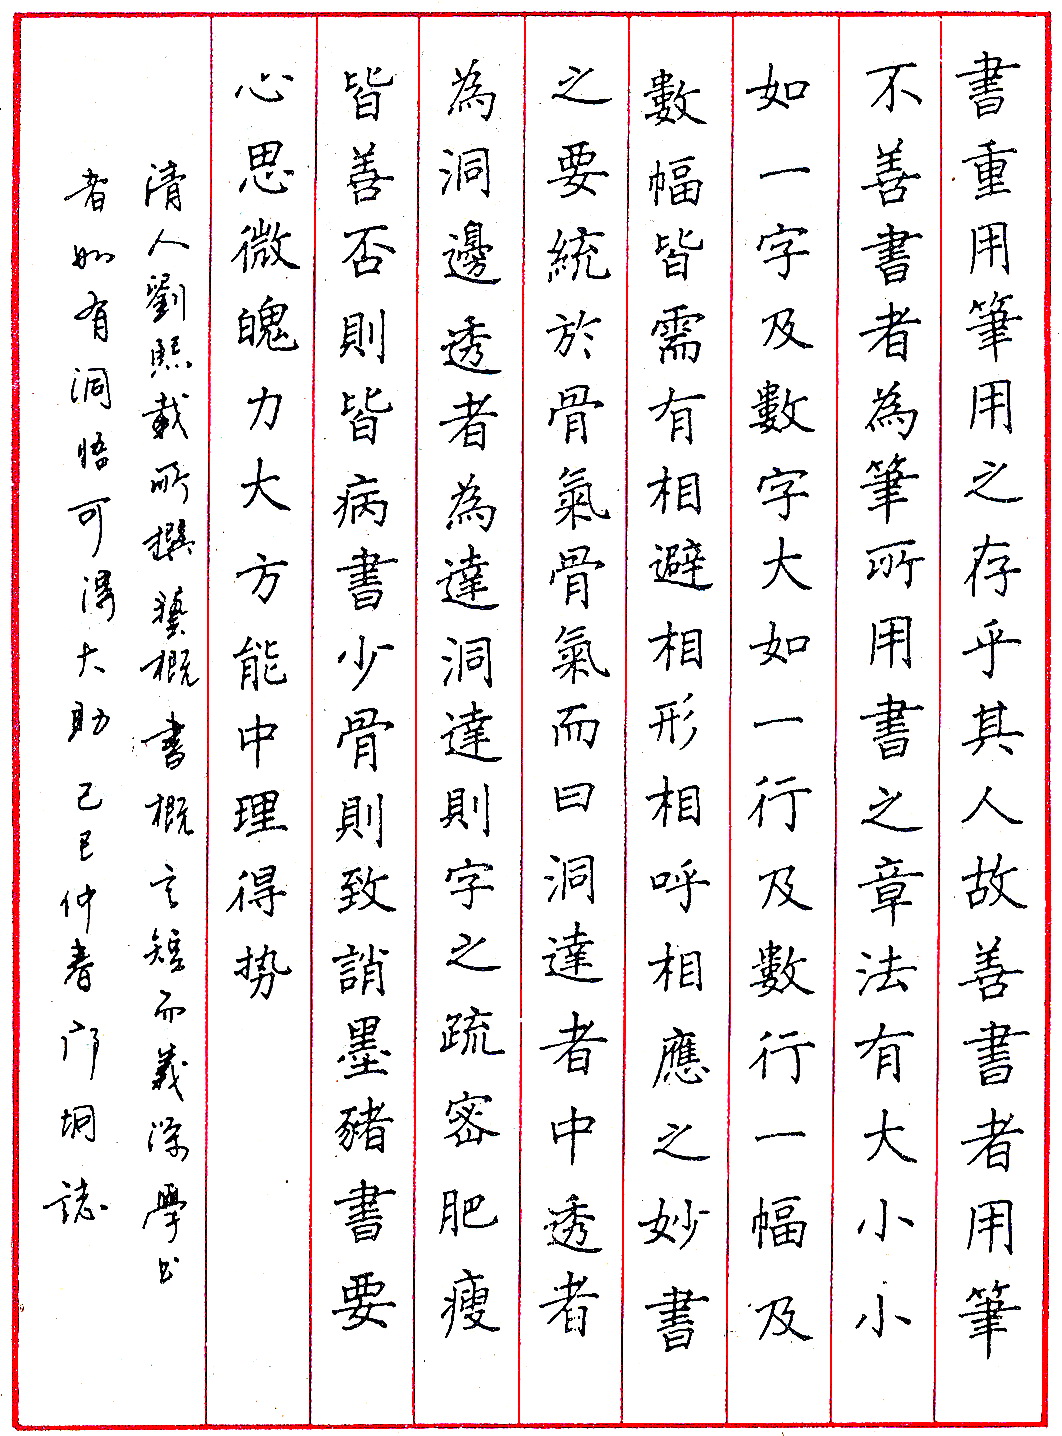 書重用筆用之存乎其人故善書者用筆
不善書者為筆所用書之章法有大小小
如一字及數字大如一行及數行一幅及
數幅皆需有相避相形相呼相應之妙書
之要統於骨氣骨氣而曰洞達者中透者
為洞邊透者為達洞達則字之疏密肥瘦
皆善否則皆病書少骨則致誚墨豬書要
心思微魄力大方能中理得势
清人劉熙載所撰藝概書概言短而義深學书
者如有洞悟可得大助己巳仲春邝垌誌